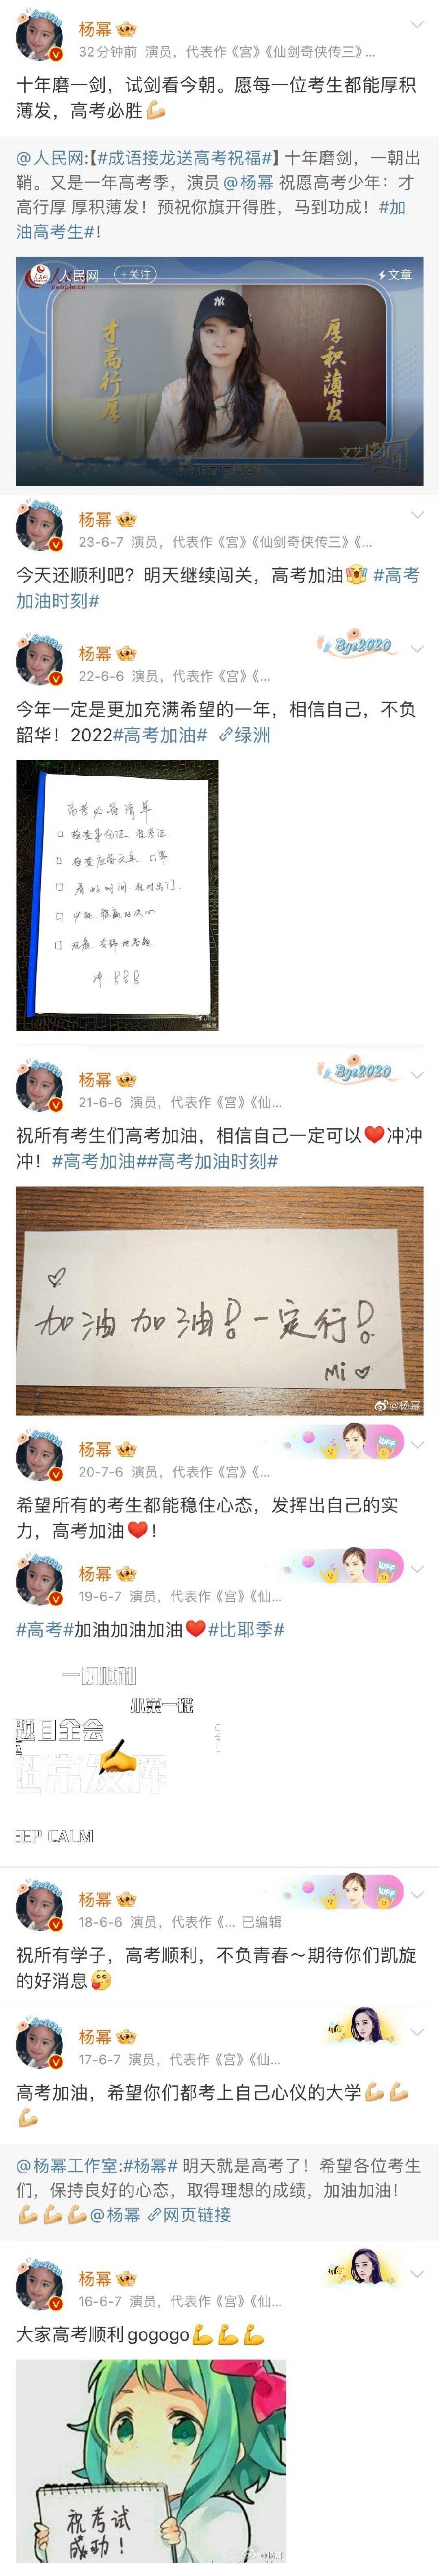 杨幂
32分钟前 演员，代表作《宫》《仙剑奇侠传三》...
十年磨一剑，试剑看今朝。愿每一位考生都能厚积
薄发，高考必胜💪
@人民网:【#成语接龙送高考祝福#】十年磨剑，一朝出
鞘。又是一年高考季，演员@杨幂 祝愿高考少年：才
高行厚 厚积薄发！预祝你旗开得胜，马到功成！#加
油高考生#！
人民网
people.cn
+关注
文章
NY
才高行厚
厚积薄发
杨幂
23-6-7 演员，代表作《宫》《仙剑奇侠传三》《...
今天还顺利吧？明天继续闯关，高考加油 #高考
加油时刻#
杨幂
Bye2020
22-6-6 演员，代表作《宫》《...
今年一定是更加充满希望的一年，相信自己，不负
韶华！2022#高考加油# 绿洲
高考必备清单
检查身份证、准考证
检查应答文具、口罩
看好时间、准时出门
沉着、冷静地答题
冲!!!
@杨幂
杨幂
Bye2020
21-6-6 演员，代表作《宫》《仙...
祝所有考生们高考加油，相信自己一定可以❤️冲冲
冲！#高考加油##高考加油时刻#
加油加油！一定行！
Mi
@杨幂
杨幂
WFF
20-7-6 演员，代表作《宫》《...
希望所有的考生都能稳住心态，发挥出自己的实
力，高考加油❤️！
杨幂
WFF
19-6-7 演员，代表作《宫》《仙...
#高考#加油加油加油❤️#比耶季#
一切顺利
小菜一碟
题目全会
超常发挥
EEP CALM
杨幂
WFF
18-6-6 演员，代表作《... 已编辑
祝所有学子，高考顺利，不负青春～期待你们凯旋
的好消息😘
杨幂
17-6-7 演员，代表作《宫》《仙...
高考加油，希望你们都考上自己心仪的大学💪💪
💪
@杨幂工作室:#杨幂# 明天就是高考了！希望各位考生
们，保持良好的心态，取得理想的成绩，加油加油！
💪💪💪@杨幂 网页链接
杨幂
16-6-7 演员，代表作《宫》《仙...
大家高考顺利gogogo💪💪💪
祝考试
成功！